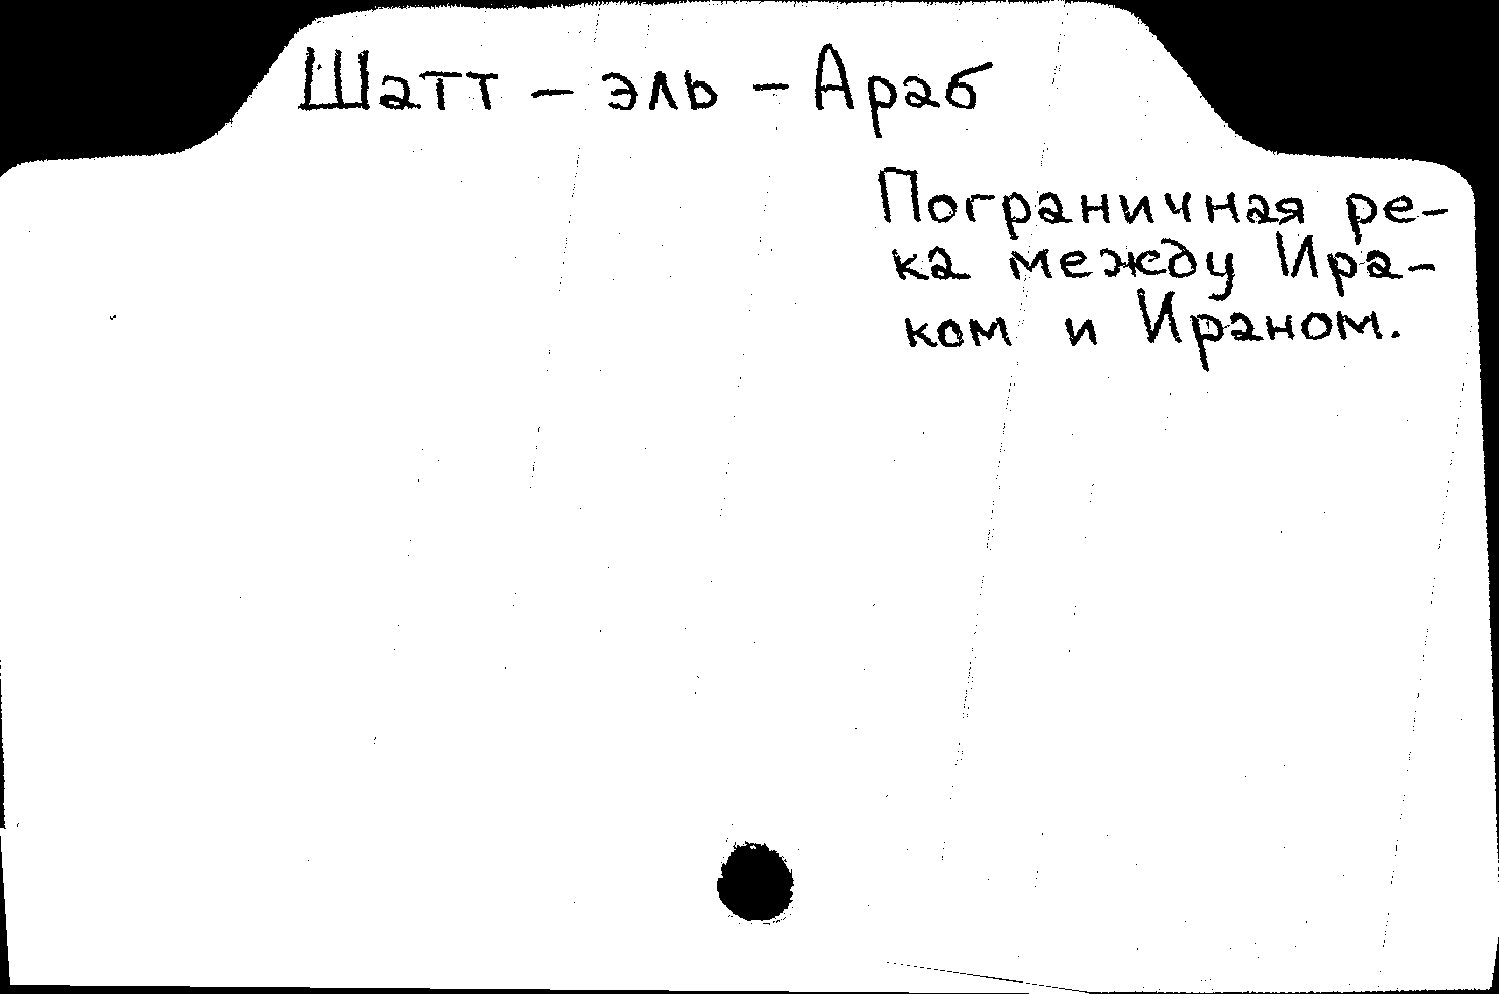 Шатт – эль – Араб
Пограничная ре-
ка между Ира-
ком и Ираном.